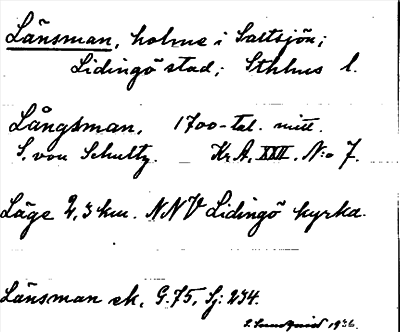 Länsman, holme i Saltsjön;
Lidingö stad; Sthlms l.
Långsman, 1700-tal. mitt.
S. von Schultz. Kr A, XXII, N:o 7.
Läge 2,3 km. NNV Lidingö kyrka.
Länsman ek, G.75, Sj: 234.
S. Lundqvist 1936.